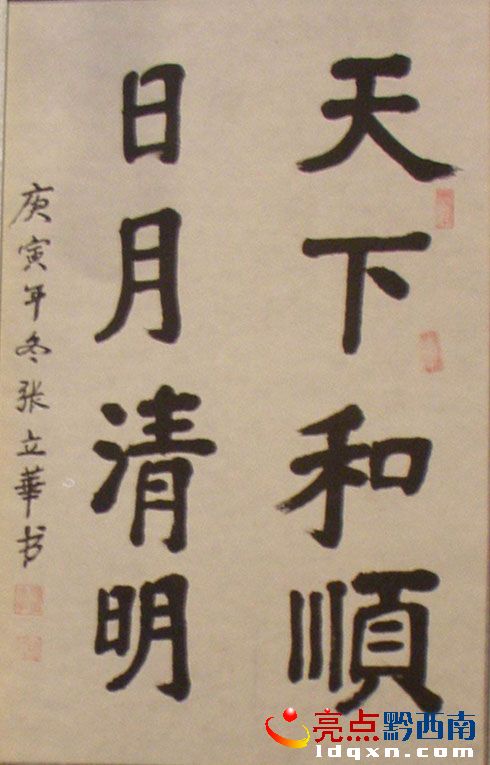 天下和順
日月清明
庚寅年冬张立華书
亮点黔西南
ldqxn.com